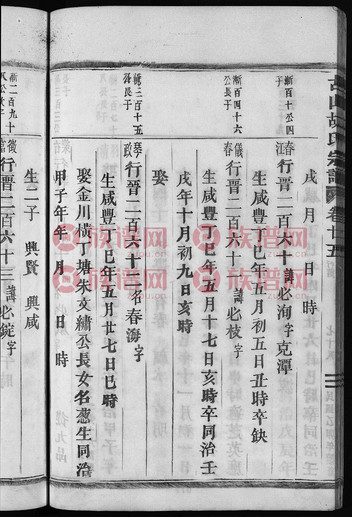 古山胡氏宗譜 卷十五
戌月日時
漸百十公四子
江春
行晋二百六十 諱必洵字克潭
生咸豐丁巳年五月初五日丑時卒缺
漸百四十六公長子
儀春
行晋二百六十一 諱必枝字
生咸豐丁巳年五月十七日亥時卒同治壬
戌年十月初九日亥時
娶
漸三百十五公長子
琴政
行晋二百六十二 名春海字
生咸豐丁巳年五月廿七日巳時
娶金川橫丁塘朱文繡公長女名葱生同治
甲子年月日時
生二子 興賢 興咸
漸二百九十
行晋二百六十三 諱必錠字
族譜网